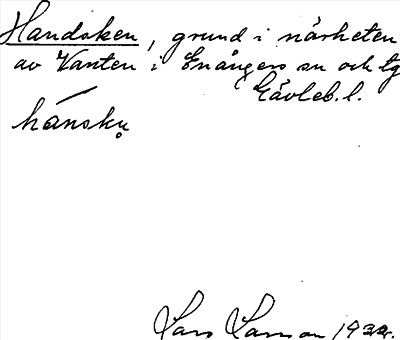 Handsken, grund i närheten
av Vanten i Enångers sn och tg
Gävleb. l.
hánskų
Lars Larsson 1932.